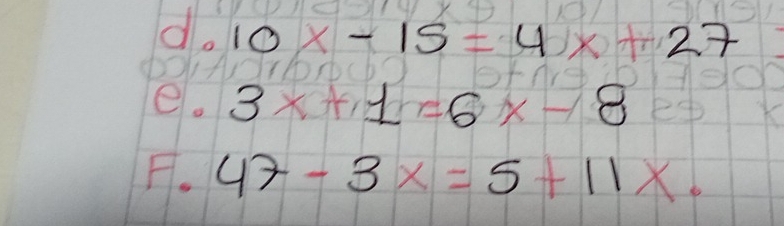 d. 10x - 15 = 4x + 27
e. 3x + 1 = 6x - 8
F. 47 - 3x = 5 + 11x.